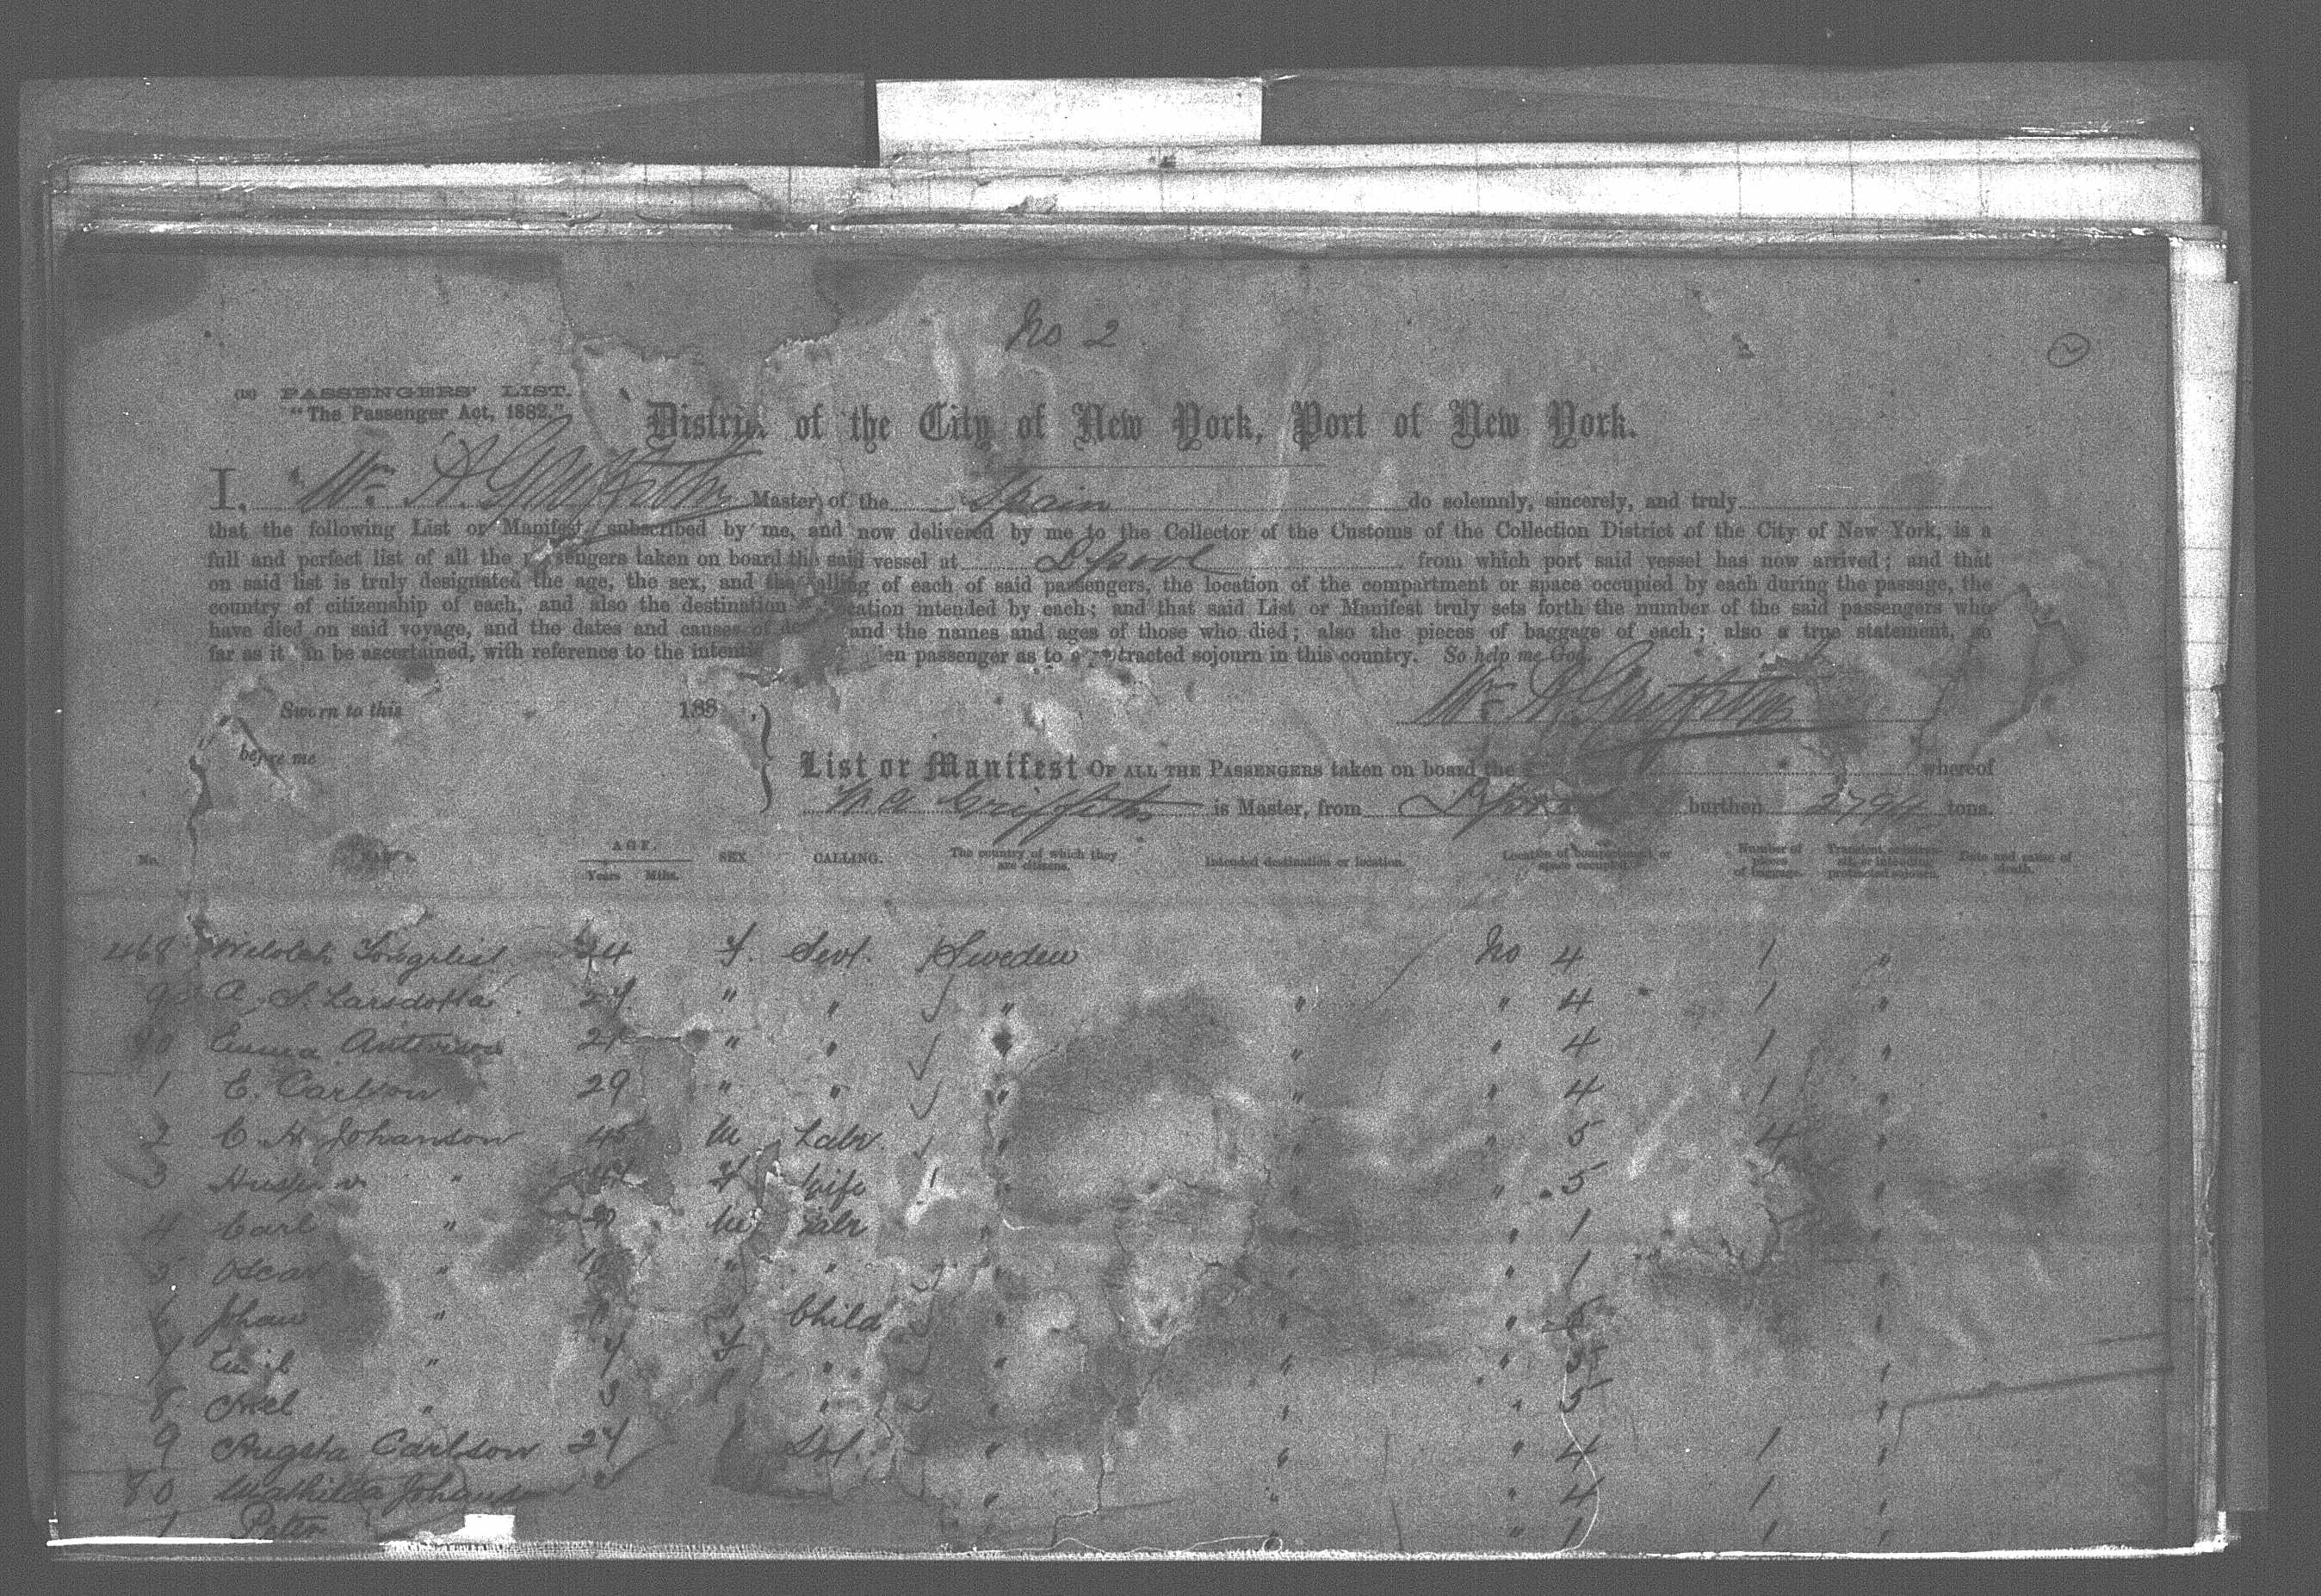 No 2
(18) PASSENGERS' LIST.
"The Passenger Act, 1882."
District of the City of New York, Port of New York.
I, Wm A Griffiths Master of the Spain do solemnly, sincerely, and truly
that the following List or Manifest, subscribed by me, and now delivered by me to the Collector of the Customs of the Collection District of the City of New York, is a
full and perfect list of all the passengers taken on board the said vessel at Lpool from which port said vessel has now arrived; and that
on said list is truly designated the age, the sex, and the calling of each of said passengers, the location of the compartment or space occupied by each during the passage, the
country of citizenship of each, and also the destination location intended by each; and that said List or Manifest truly sets forth the number of the said passengers who
have died on said voyage, and the dates and causes of and the names and ages of those who died; also the pieces of baggage of each; also a true statement, so
far as it can be ascertained, with reference to the passenger as to a protracted sojourn in this country. So help me God.
Wm A Griffiths
Sworn to this 188 .
before me
List or Manifest OF ALL THE PASSENGERS taken on board the whereof
W A Griffiths is Master, from Lpool burthen 2794 tons.
No. AGE. Years Mths. SEX CALLING. The country of which they are citizens. Intended destination or location. Location of compartment or space occupied. Number of pieces of baggage. Date and cause of death.
468 24 f. Servt. Sweden No 4 1 "
9 A. S. Larsdotta " " " " " 4 1 "
70 Emma " " " " " 4 1 "
1 E. Carlson 29 " " " " " 4 1 "
2 C. H. Johanson 45 M Labr. " " " 5 4 "
3 " f Wife " " " 5 "
4 Carl " M Labr " " " 1 "
5 Oscar " " " " " " 1 "
6 Johan " " Child " " " 5 "
7 Emil " 7 f " " " " 5 "
8 Axel " 3 " " " " 5 "
9 Augsta Carlson Svt. " " " 4 1 "
80 Mathilda " " " 4 1 "
1 Peter " 1 1 "